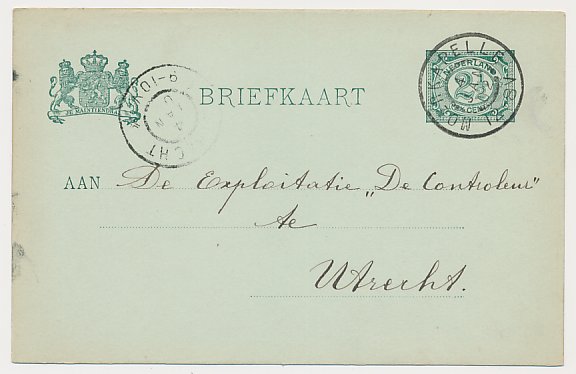 JE MAINTIENDRAI
BRIEFKAART
NEDERLAND
2½
CENT
AAN De Exploitatie „De Controleur"
te
Utrecht.